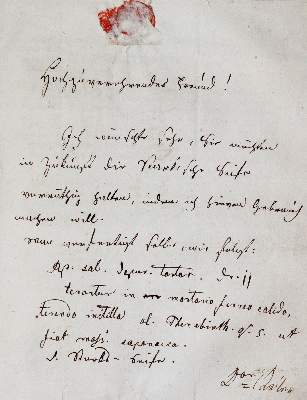 Hochzuverehrender Freund!
Ich wünschte sehr, Sie möchten
in Zukunft die Starkische Seife
vorräthig halten, indem ich hievon Gebrauch
machen will.
verfertigt selbe, wie folgt:
Rp. sal. depur. tartar. Dr. ii
terantur in mortario ferreo calido,
terendo instilla ol. Therebinth. q. s. ut
fiat mass. saponacea.
S. Starks-Seife.